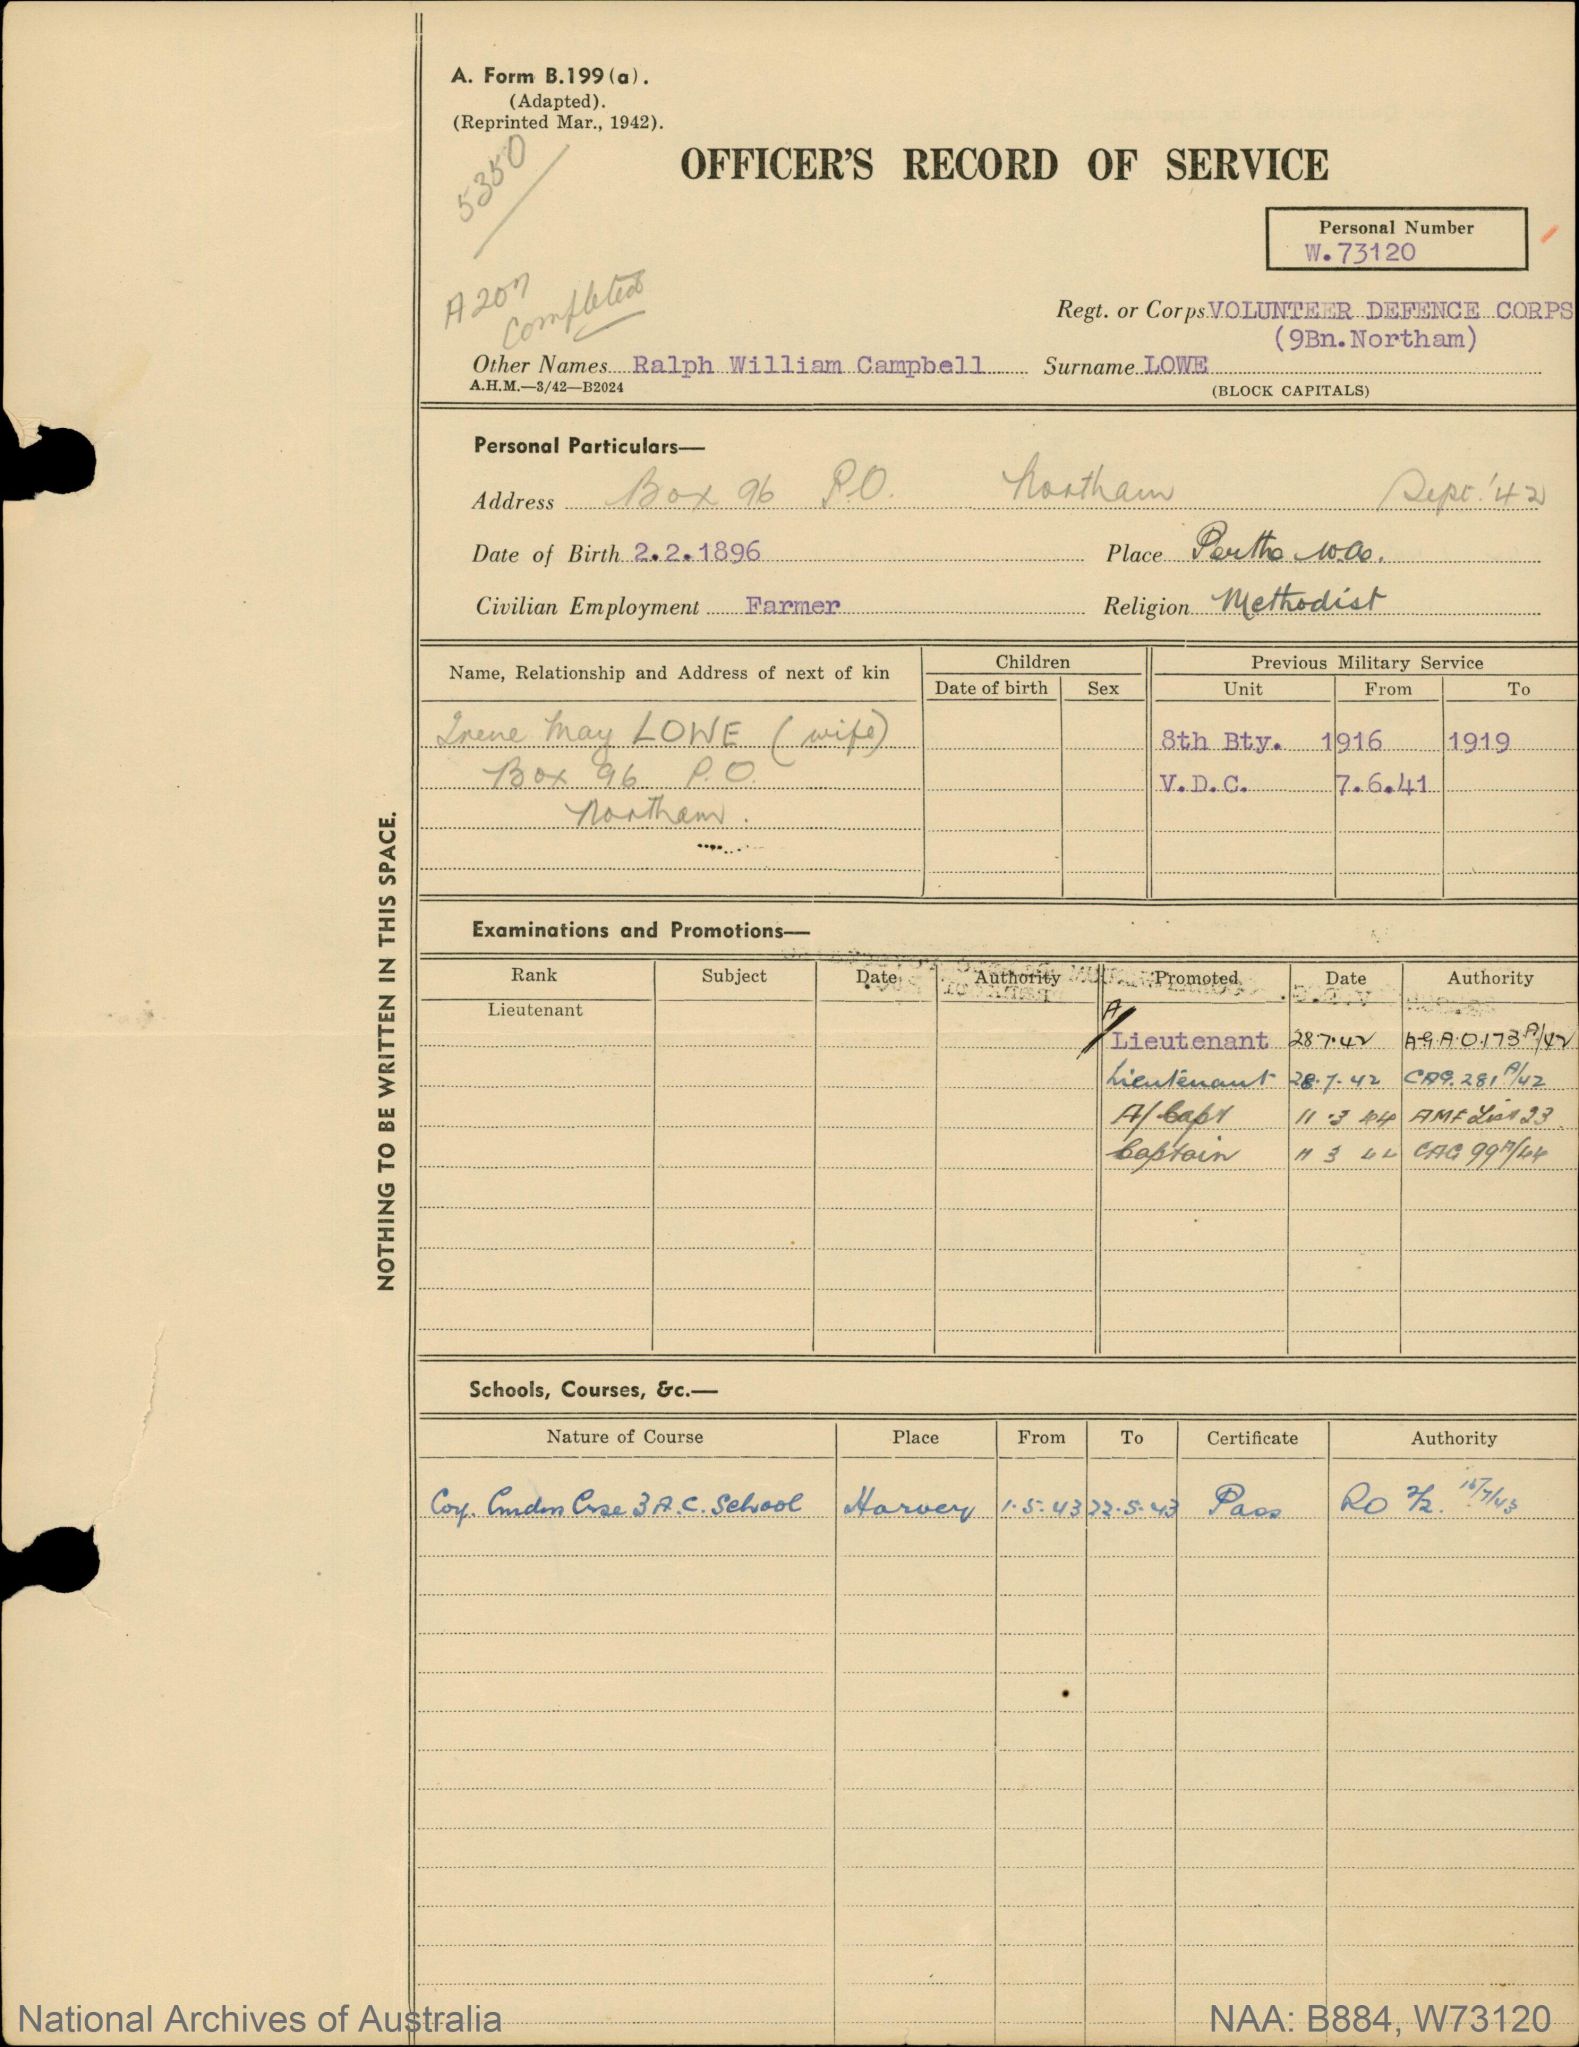 A. Form B.199 (a).
(Adapted).
(Reprinted Mar., 1942).
5350
OFFICER'S RECORD OF SERVICE
Personal Number
W.73120
A 207
Completed
Regt. or Corps VOLUNTEER DEFENCE CORPS
(9Bn.Northam)
Other Names Ralph William Campbell Surname LOWE
A.H.M.—3/42—B2024 (BLOCK CAPITALS)
Personal Particulars—
Address Box 96 P.O. Northam Sept. '42
Date of Birth 2.2.1896 Place Perth W.A.
Civilian Employment Farmer Religion Methodist
Name, Relationship and Address of next of kin Children Previous Military Service
Date of birth Sex Unit From To
Irene May LOWE (wife) 8th Bty. 1916 1919
Box 96 P.O. V.D.C. 7.6.41
Northam.
NOTHING TO BE WRITTEN IN THIS SPACE.
Examinations and Promotions—
Rank Subject Date Authority Promoted Date Authority
Lieutenant
A/Lieutenant 28.7.42 A.G.A.O.173A/42
Lieutenant 28.7.42 CAG.281A/42
A/Capt 11.3.44 AMF List 23.
Captain 11 3 44 CAG 99A/44
Schools, Courses, &c.—
Nature of Course Place From To Certificate Authority
Coy. Cmdrs Crse 3 A.C. School Harvey 1.5.43 22.5.43 Pass RO 15/7/43
National Archives of Australia NAA: B884, W73120